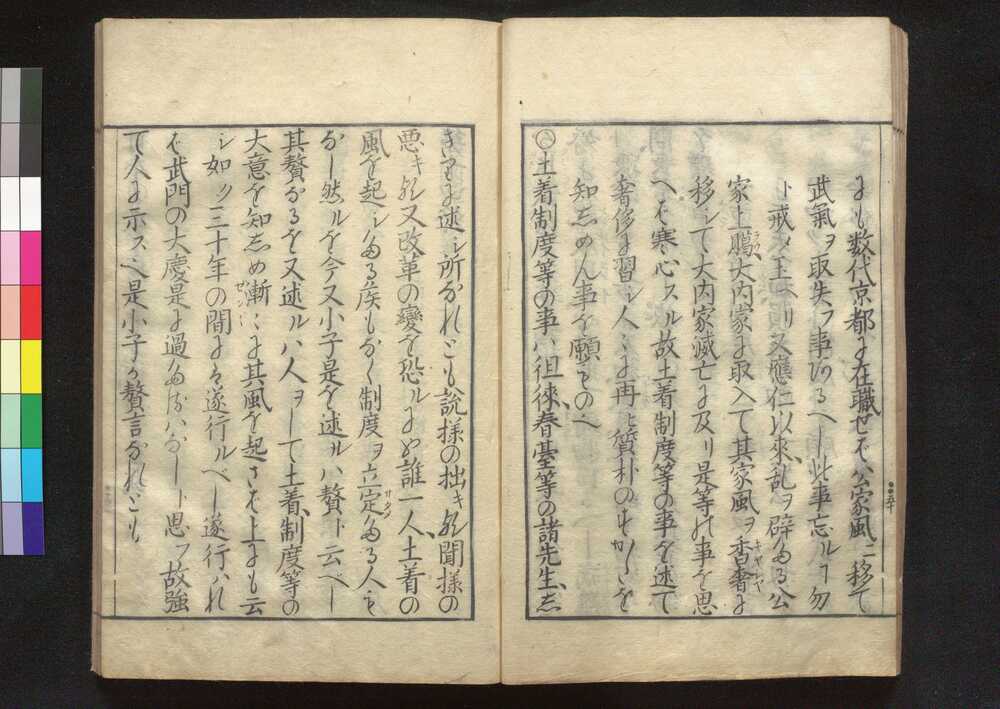 にも数代京都に在職せば公家風ニ移て
武氣ヲ取失フ事あるべし此事忘ルヿ勿
ト戒メ玉ヘリ又應仁以來乱ヲ辟たる公
家上臈大内家に取入て其家風ヲ香奢に
移シて大内家滅亡に及リ是等の事を思
へば寒心スル故土着制度等の事を述て
奢侈に習シ人々に再ヒ質朴のむかしを
知しめん事を願ものへ
○土着制度等の事ハ徂徠春臺等の諸先生、志
きりに述シ所なれども説様の拙キ歟聞様の
悪キ歟又改革の變を恐ルゝにや誰一人、土着の
風を起シたる族もなく制度ヲ立定たる人も
なし然ルを今又小子是を述ルハ贅ト云べし
其贅なるを又述ルハ人ヲして土着、制度等の
大意を知しめ漸々に其風を起さば上にも云
シ如ク三十年の間には遂行ルべし遂行ハれ
ば武門の大慶是に過たるハなしト思フ故強
て人に示ス也是小子が贅言なれども